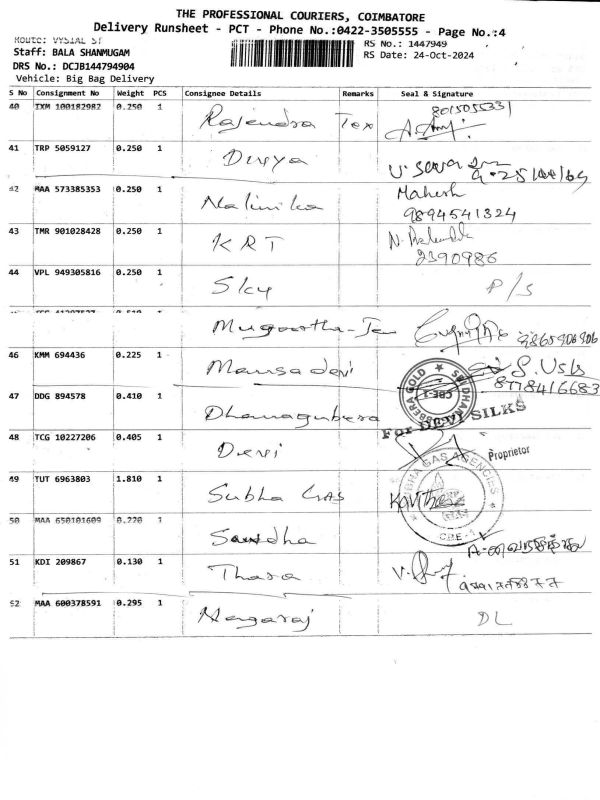 THE PROFESSIONAL COURIERS, COIMBATORE
Delivery Runsheet - PCT - Phone No.:0422-3505555 - Page No.:4
Route: VYSIAL ST
RS No.: 1447949
Staff: BALA SHANMUGAM
RS Date: 24-Oct-2024
DRS No.: DCJB144794904
Vehicle: Big Bag Delivery
S No Consignment No Weight PCS Consignee Details Remarks Seal & Signature
40 IXM 100182982 0.250 1 Rajendra Tex
41 TRP 5059127 0.250 1 Divya
42 MAA 573385353 0.250 1 Nalinika Mahesh
9894541324
43 TMR 901028428 0.250 1 KRT
2390986
44 VPL 949305816 0.250 1 Sky P/S
Mugoortha-Tex 9865906906
46 KMM 694436 0.225 1 Mansa devi S. Usha
8778416683
47 DDG 894578 0.410 1 Dhanagubera
For DEVI SILKS
48 TCG 10227206 0.405 1 Devi
Proprietor
49 TUT 6963803 1.810 1 Subha GAS
GAS AGENCIES
CBE-1
50 MAA 650101609 0.220 1 Sandha
51 KDI 209867 0.130 1 Thara
52 MAA 600378591 0.295 1 Nagaraj DL